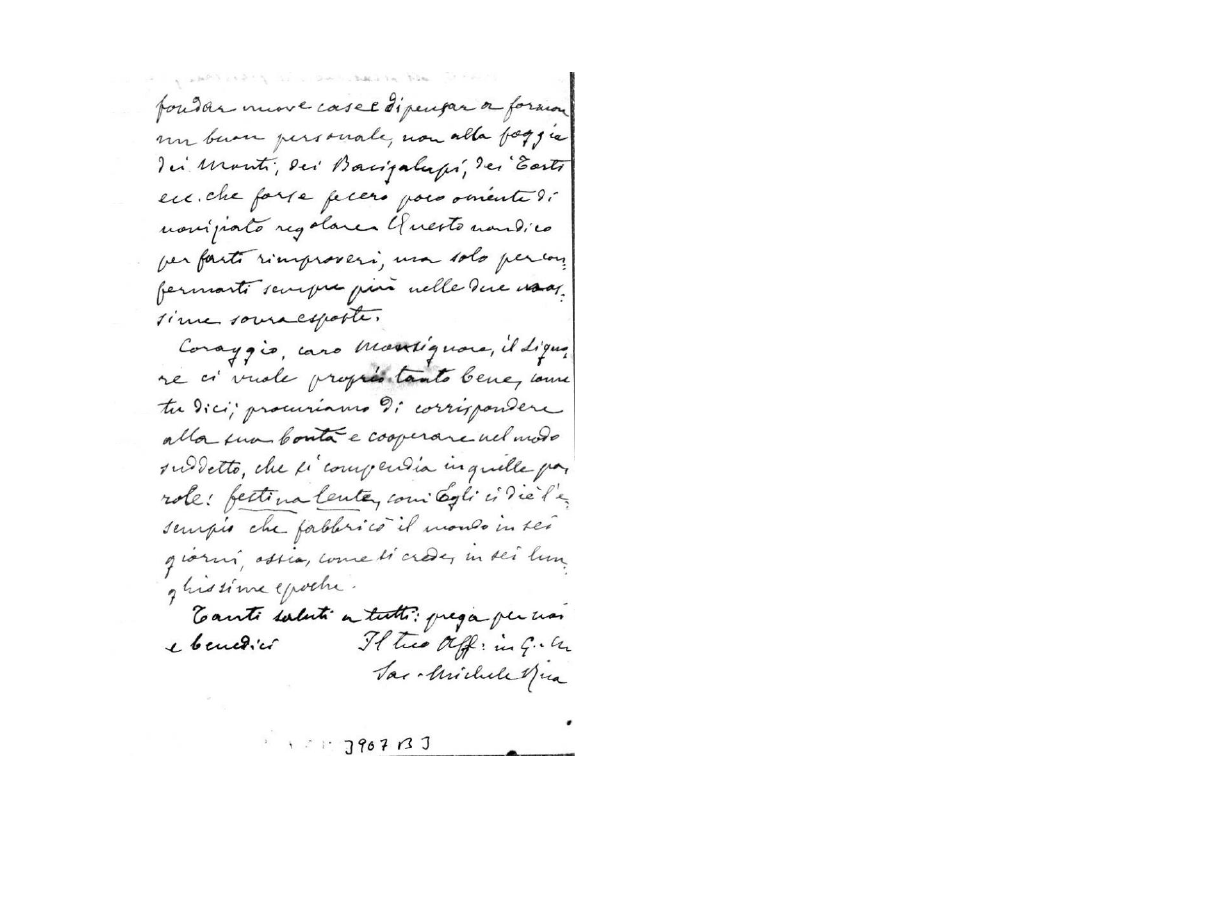 fondar nuove case e di pensar a formar
un buon personale, non alla foggia
dei Monti, dei Bacigalupi, dei Torti
ecc. che forse fecero poco o niente di
noviziato regolare. Questo non dico
per farti rimproveri, ma solo per con,
fermarti sempre più nelle due mas,
sime sovraesposte.
Coraggio, caro Monsignore, il Signo,
re ci vuole proprio tanto bene, come
tu dici; procuriamo di corrispondere
alla sua bontà e cooperare nel modo
suddetto, che si compendia in quelle pa,
role: festina lente, com'Egli ci diè l'e,
sempio che fabbricò il mondo in sei
giorni, ossia, come si crede, in sei lun,
ghissime epoche.
Tanti saluti a tutti: prega per noi
e benedici Il tuo Aff: in G. e M
Sac. Michele Rua
3907 B 3